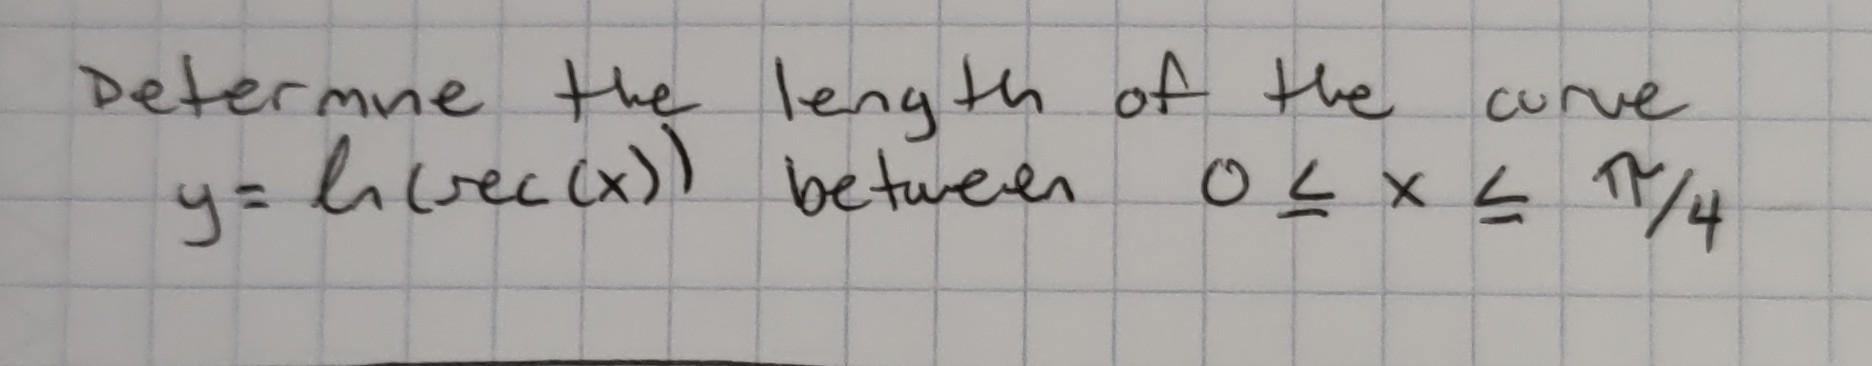 Determine the length of the curve
y = ln(sec(x)) between 0 ≤ x ≤ π/4